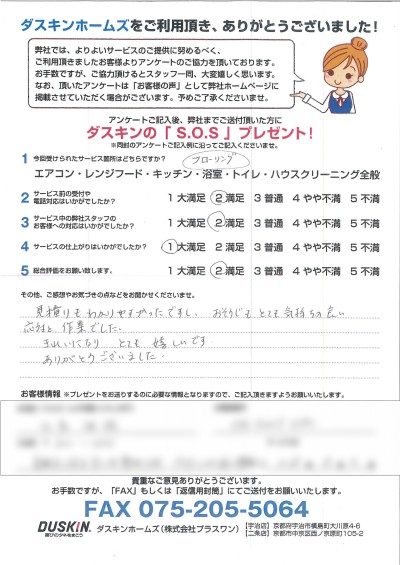 ダスキンホームズをご利用頂き、ありがとうございました!
弊社では、よりよいサービスのご提供に努めるべく、
ご利用頂きましたお客様よりアンケートのご協力を頂いております。
お手数ですが、ご協力頂けるとスタッフ一同、大変嬉しく思います。
なお、頂いたアンケートは「お客様の声」として弊社ホームページに
掲載させていただく場合がございます。予めご了承くださいませ。
アンケートご記入後、弊社までご送付頂いた方に
ダスキンの「S.O.S」プレゼント!
※同封のアンケートご記入例に沿ってご記入くださいませ。
1 今回受けられたサービス箇所はどちらですか? フローリング
エアコン・レンジフード・キッチン・浴室・トイレ・ハウスクリーニング全般
2 サービス前の受付や電話対応はいかがでしたか? 1 大満足 2 満足 3 普通 4 やや不満 5 不満
3 サービス中の弊社スタッフのお客様への対応はいかがでしたか? 1 大満足 2 満足 3 普通 4 やや不満 5 不満
4 サービスの仕上がりはいかがでしたか? 1 大満足 2 満足 3 普通 4 やや不満 5 不満
5 総合評価をお願い致します。 1 大満足 2 満足 3 普通 4 やや不満 5 不満
その他、ご感想やお気づきの点などをお聞かせくださいませ。
見積りもわかりやすかったですし、おそうじもとても気持ちの良い
応対と作業でした。
きれいになり とても嬉しいです
ありがとうございました。
お客様情報 ※プレゼントをお送りするのに必要な情報となりますので、ご記入頂きますようお願いいたします。
貴重なご意見ありがとうございます。
お手数ですが、「FAX」もしくは「返信用封筒」にてご送付をお願いします。
FAX 075-205-5064
DUSKIN 喜びのタネをまこう ダスキンホームズ(株式会社プラスワン)
【宇治店】京都府宇治市槇島町大川原4-6
【二条店】京都市中京区西ノ京原町105-2